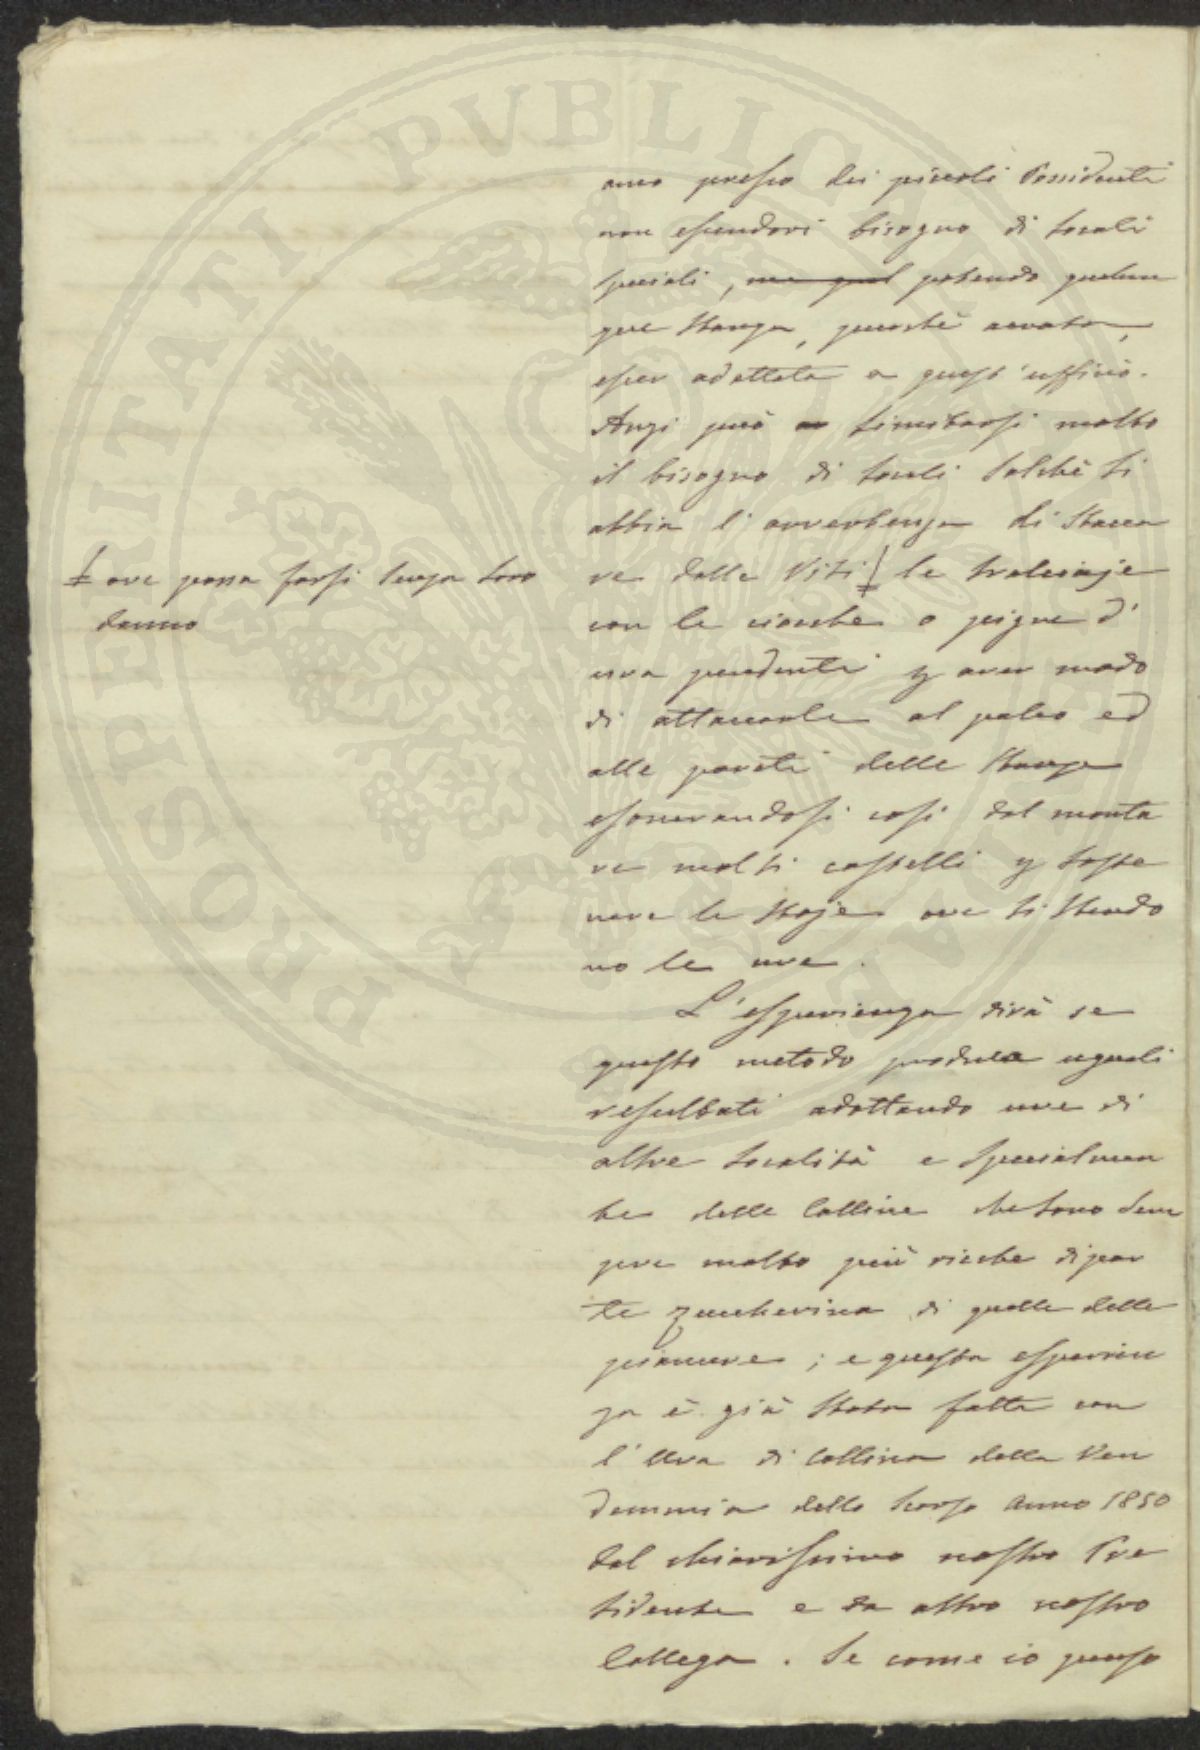 PROSPERITATI PVBLICAE AVGENDAE
anco presso dei piccoli Possidenti
non essendovi bisogno di locali
speciali, ma qual potendo qualun
que stanza, purchè areata,
esser adattata a quest'uffizio.
Anzi può limitarsi molto
il bisogno di locali solchè si
abbia l'avvertenza di stacca
re dalle Viti le tralciaje
ove possa farsi senza loro
danno
con le ciocche o pigne d'
uva pendenti p aver modo
di attaccarle al palco ed
alle pareti delle stanze
esonerandosi così dal monta
re molti castelli p soste
nere le stoje ove si stendo
no le uve.
L'esperienza dirà se
questo metodo produca uguali
resultati adottando uve di
altre località e specialmen
te delle Colline che sono sem
pre molto più ricche di par
te zuccherina di quelle delle
pianure; e questa esperien
za è già stata fatta con
l'Uva di Collina della Ven
demmia dello scorso Anno 1850
dal chiarissimo nostro Pre
sidente e da altro nostro
Collega. Se come io penso